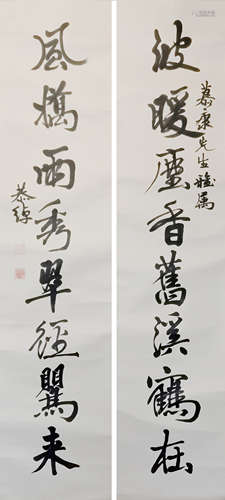 波暖塵香舊溪鶴在
慕康先生雅屬
風橋雨秀翠徑鶯来
恭綽